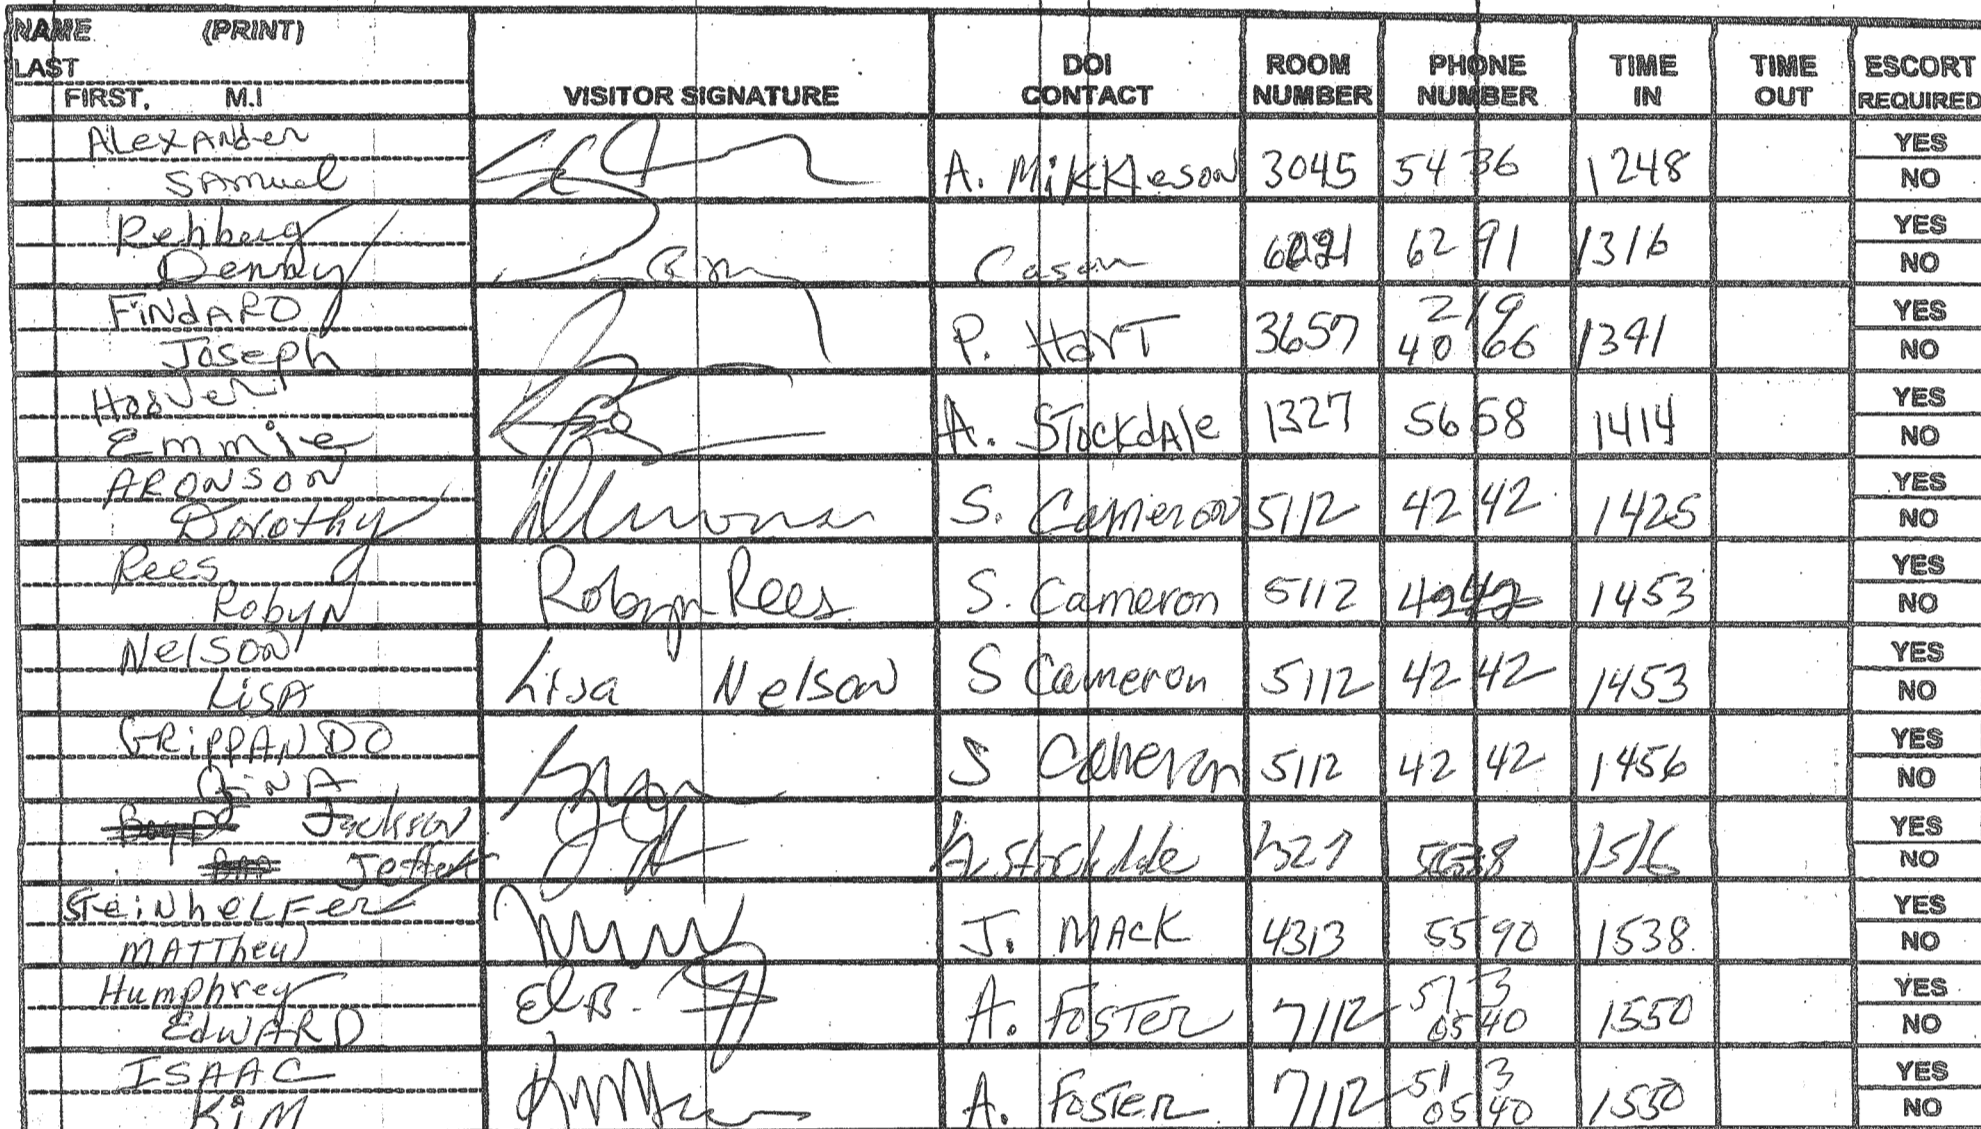 NAME (PRINT)
LAST
FIRST, M.I
VISITOR SIGNATURE
DOI CONTACT
ROOM NUMBER
PHONE NUMBER
TIME IN
TIME OUT
ESCORT REQUIRED
Alexander YES
Samuel A. Mikkleson 3045 5436 1248 NO
Rehberg YES
Denny Cason 6291 1316 NO
FindARO 219 YES
Joseph P. HarT 3657 4066 1341 NO
Hoover YES
Emmie A. Stockdale 1327 5658 1414 NO
ARONSON YES
Dorothy S. Cameron 5112 4242 1425 NO
Rees YES
Robyn Robyn Rees S. Cameron 5112 4242 1453 NO
Nelson YES
LiSA Lisa Nelson S Cameron 5112 4242 1453 NO
GRiPPANDO YES
GiNA S Cameron 5112 4242 1456 NO
Jackson YES
Jeffery A Stockdale 1327 1516 NO
SteinheLFer YES
MATThew J. MACK 4313 5590 1538 NO
Humphrey 513 YES
EdWARD A. FOSTER 7112 0540 1550 NO
ISAAC 513 YES
KiM A. FOSTER 7112 0540 1550 NO